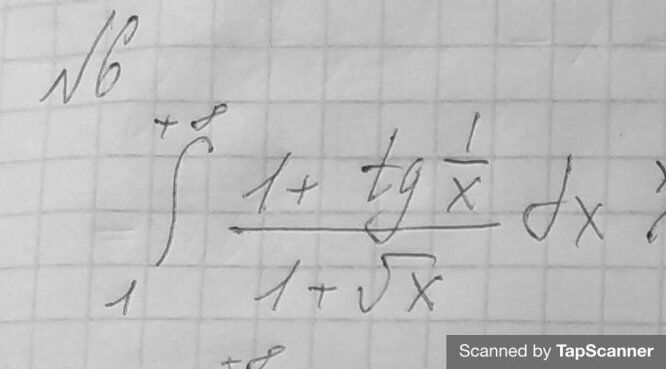 №6
+∞
∫ 1 + tg 1/x
1
1 + √x dx
+∞
Scanned by TapScanner